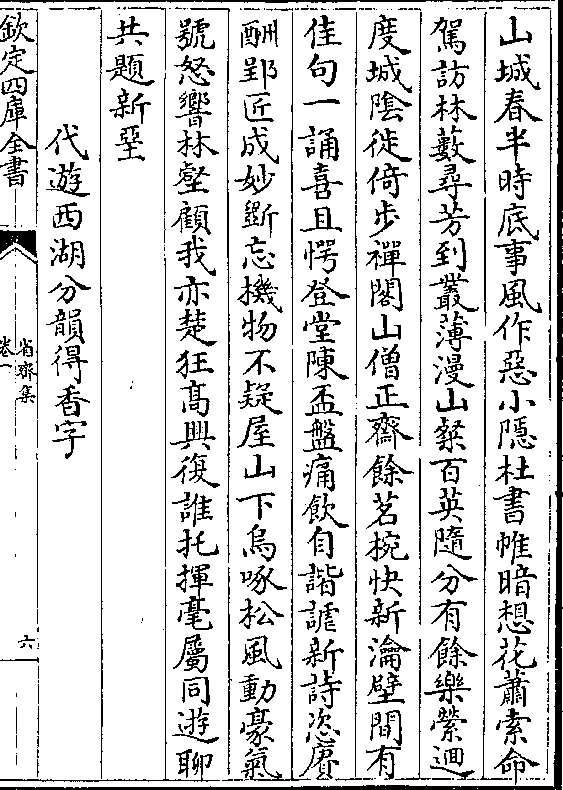 山城春半時底事風作惡小隱杜書帷暗想花蕭索命
駕訪林藪尋芳到叢薄漫山粲百英隨分有餘樂縈迴
度城陰徙倚步禪閣山僧正齋餘茗椀快新瀹壁間有
佳句一誦喜且愕登堂陳盃盤痛飲自諧謔新詩恣賡
酬郢匠成妙斲忘機物不疑屋山下烏啄松風動豪氣
號怒響林壑顧我亦楚狂髙興復誰托揮毫屬同遊聊
共題新堊
代遊西湖分韻得香字
欽定四庫全書
省齋集
卷一
六